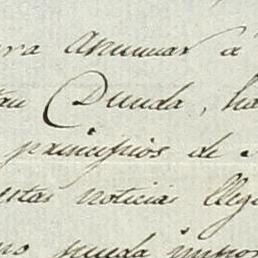 ra anunciar à
tan Dunda, ha
principios de
estas noticias lleg
no pueda impo